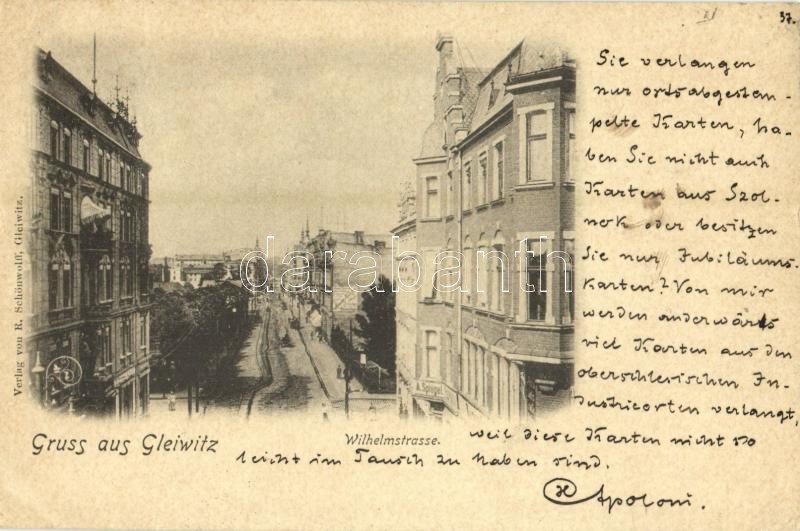 37.
Sie verlangen
nur ortsabgestem-
pelte Karten, ha-
ben Sie nicht auch
Karten aus Szol-
nok oder besitzen
Sie nur Jubiläums-
karten? Von mir
werden anderwärts
viel Karten aus den
oberschlesischen In-
dustrieorten verlangt,
weil diese Karten nicht so
leicht im Tausch zu haben sind.
Apoloni.
Verlag von R. Schönwolff, Gleiwitz.
darabanth.com
Gruss aus Gleiwitz
Wilhelmstrasse.